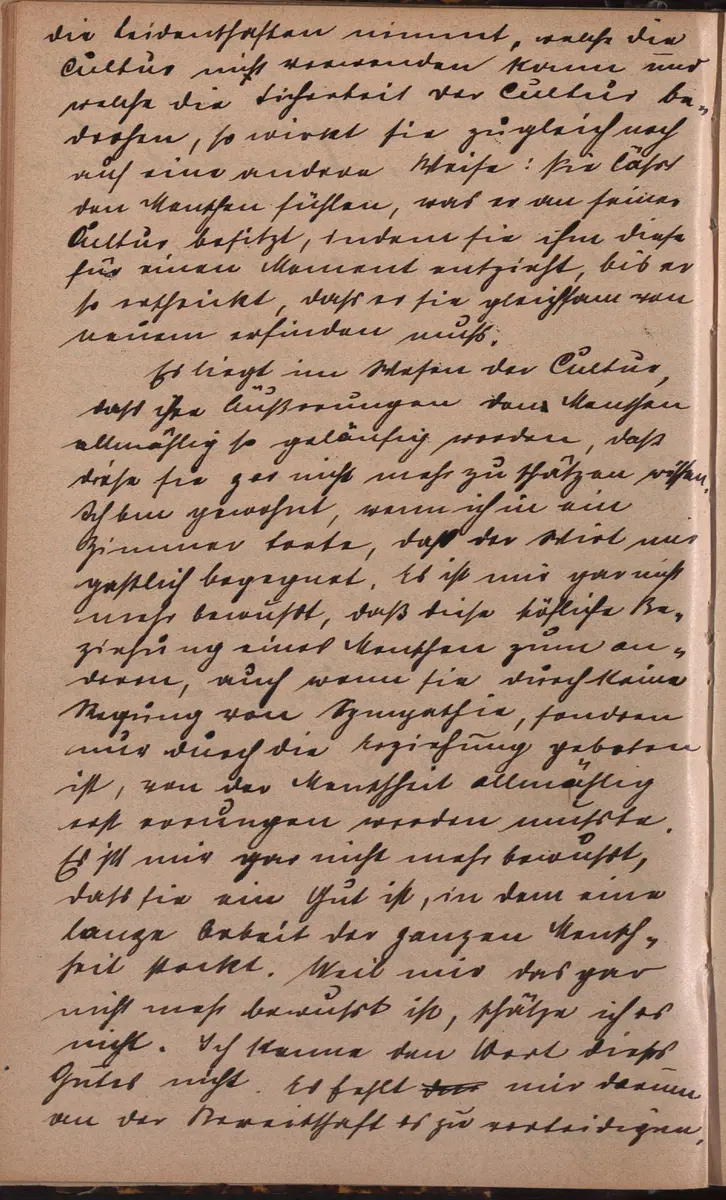 die Leidenschaften nimmt, welche die
Cultur nicht verwenden kann und
welche die Sicherheit der Cultur be-
drohen, so wirkt sie zugleich noch
auf eine andere Weise: sie läßt
den Menschen fühlen, was er an seiner
Cultur besitzt, indem sie ihm diese
für einen Moment entzieht, bis er
so erschrickt, dass er sie gleichsam von
neuem erfinden muß.
Es liegt im Wesen der Cultur,
dass ihre Äußerungen den Menschen
allmählig so geläufig werden, daß
diese sie gar nicht mehr zu schätzen wissen.
Ich bin gewohnt, wenn ich in ein
Zimmer trete, daß der Wirt mir
gastlich begegnet. Es ist mir gar nicht
mehr bewußt, daß diese höfliche Be-
ziehung eines Menschen zum an-
deren, auch wenn sie durch keine
Regung von Sympathie, sondern
nur durch die Erziehung geboten
ist, von der Menschheit allmählig
erst errungen werden musste.
Es ist mir gar nicht mehr bewußt,
dass sie ein Gut ist, in dem eine
lange Arbeit der ganzen Mensch-
heit steckt. Weil mir das gar
nicht mehr bewusst ist, schätze ich es
nicht. Ich kenne den Wert dieses
Gutes nicht. Es fehlt mir darum
an der Bereitschaft es zu verteidigen.